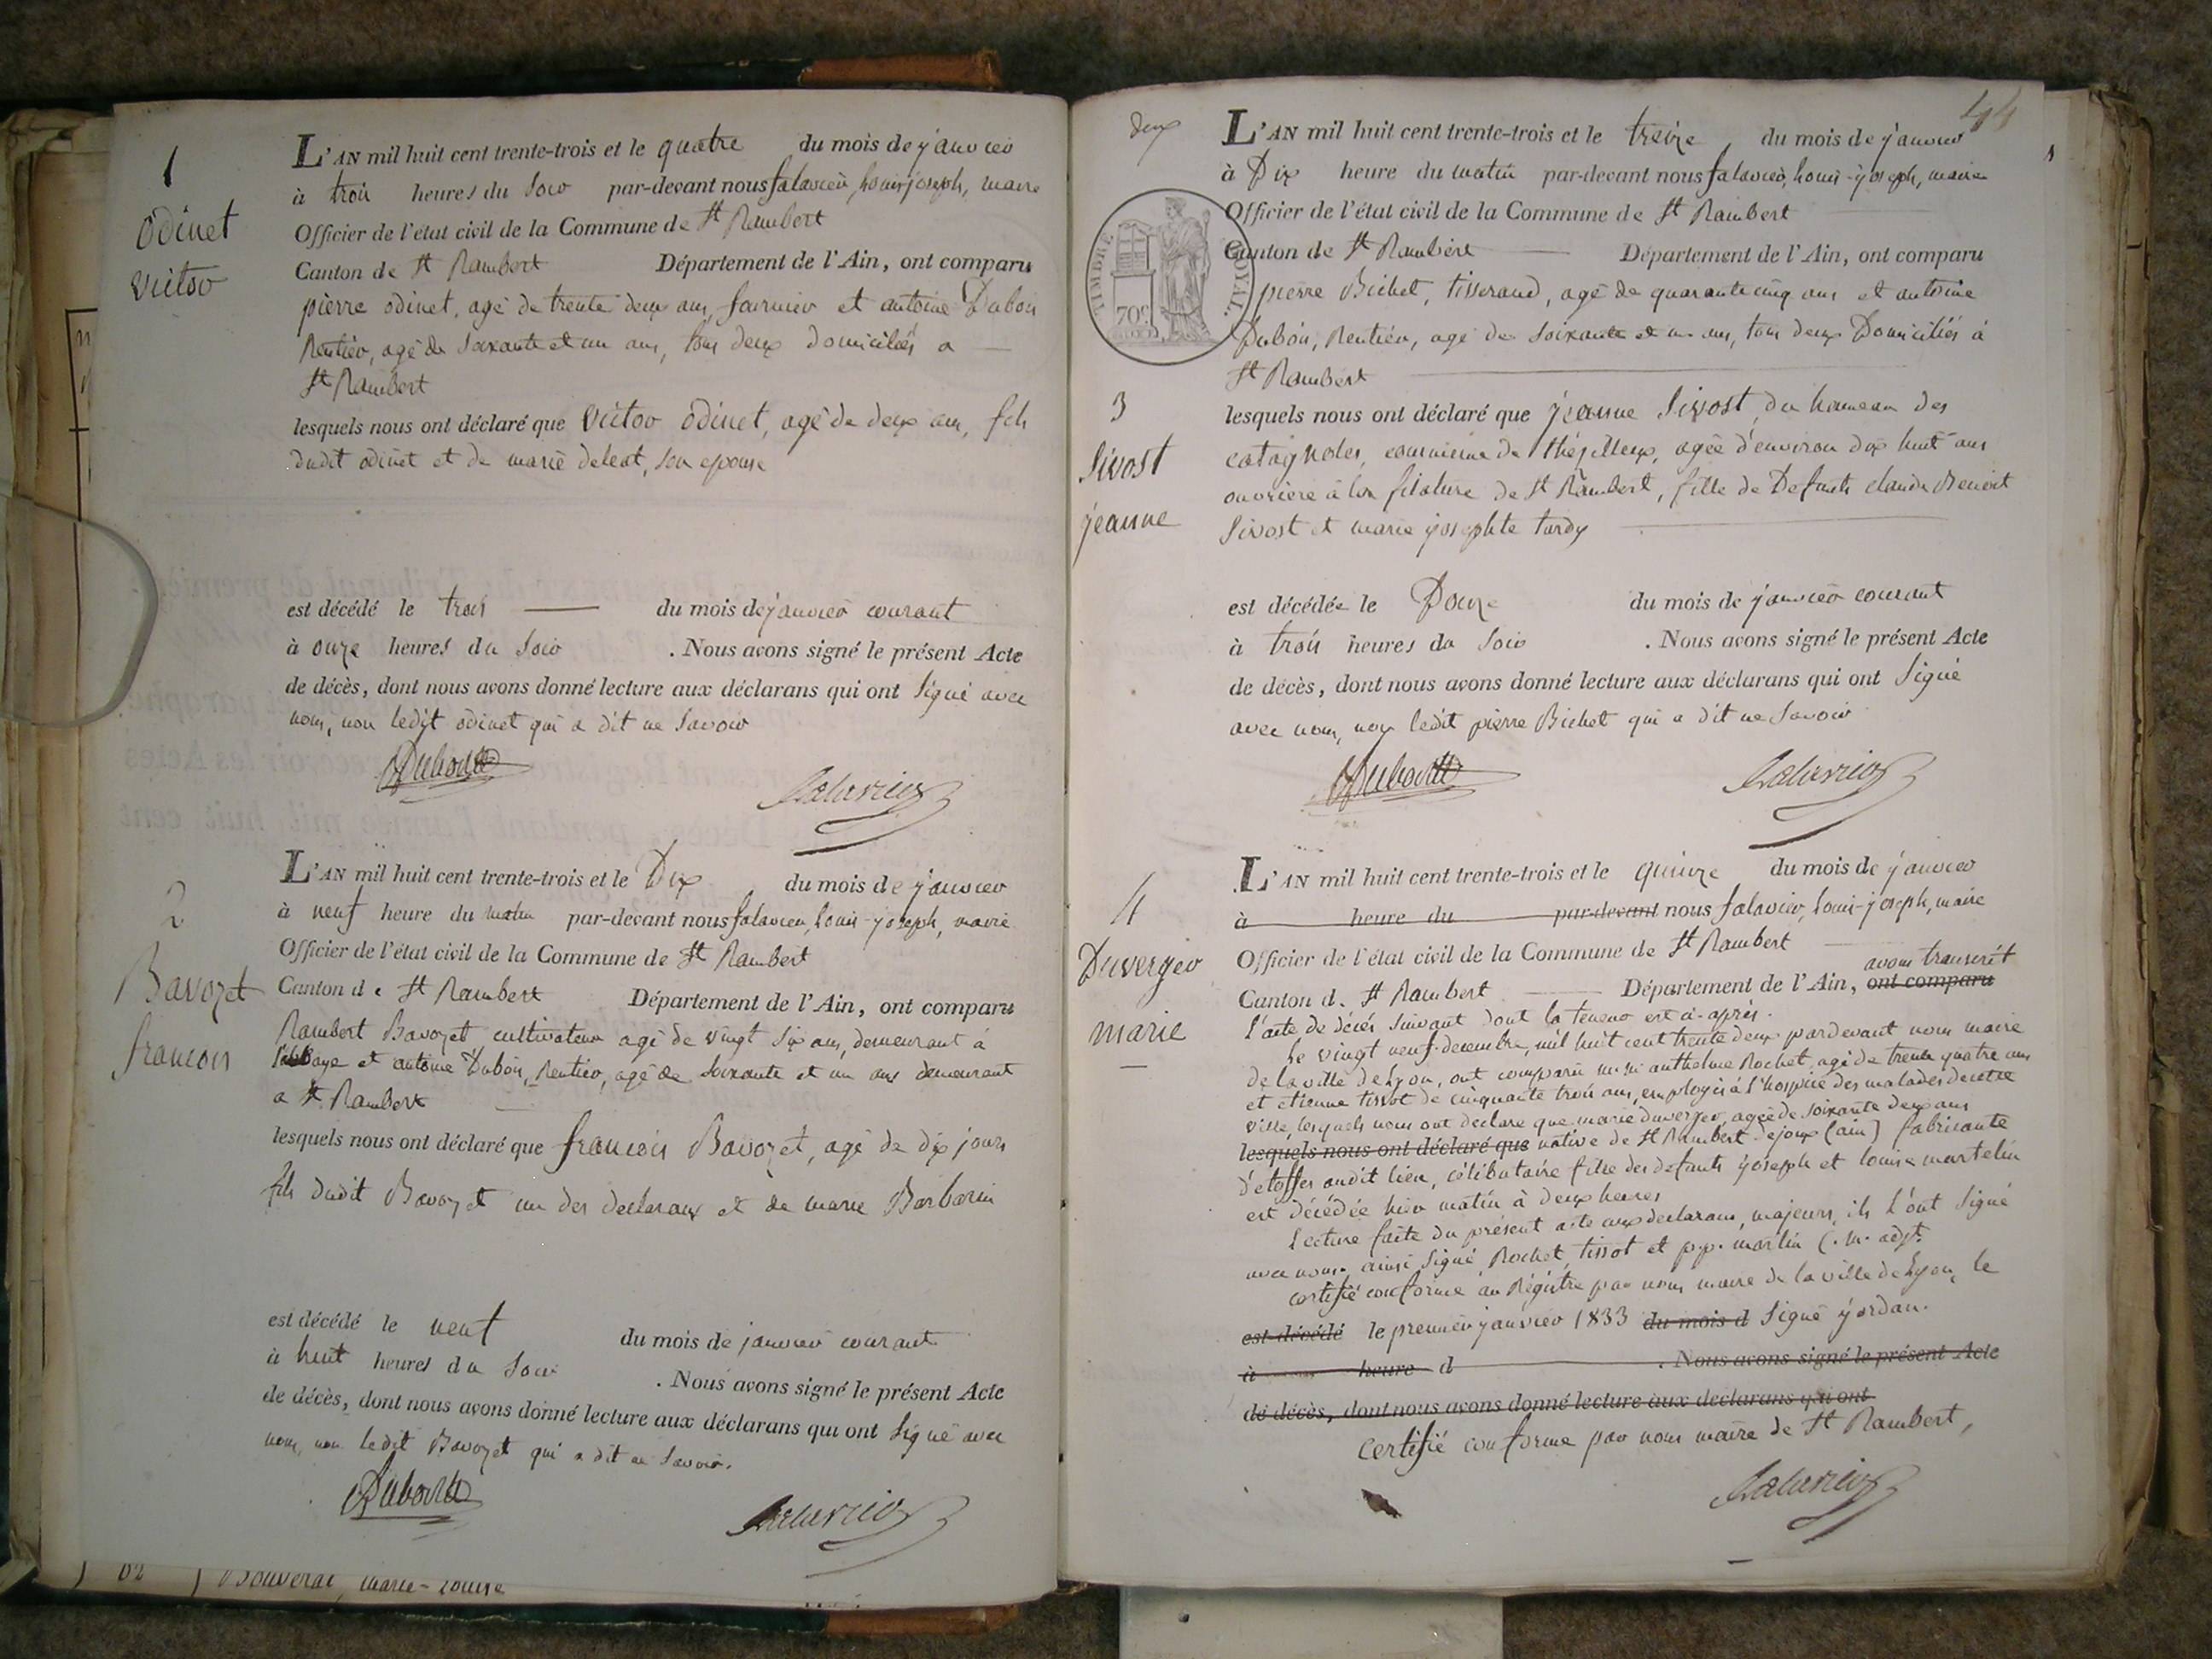 1
Odinet
Victor
L'AN mil huit cent trente-trois et le quatre du mois de janvier
à trois heures du soir par-devant nous falavier, louis joseph, maire
Officier de l'état civil de la Commune de St Rambert
Canton de St Rambert Département de l'Ain, ont comparu
pierre odinet, agé de trente deux ans, fournier et antoine Dubois
Rentier, agé de soixante et un ans, tous deux domiciliés a
St Rambert
lesquels nous ont déclaré que Victor Odinet, agé de deux ans, fils
dudit odinet et de marie deleat, son epouse
est décédé le trois du mois de janvier courant
à onze heures du soir . Nous avons signé le présent Acte
de décès, dont nous avons donné lecture aux déclarans qui ont signé avec
nous, non ledit odinet qui a dit ne savoir
Dubois
falavier
2
Bavozet
francois
L'AN mil huit cent trente-trois et le Dix du mois de janvier
à neuf heure du matin par-devant nous falavier, louis-joseph, maire
Officier de l'état civil de la Commune de St Rambert
Canton de St Rambert Département de l'Ain, ont comparu
Rambert Bavozet cultivateur agé de vingt six ans, demeurant à
l'abbaye et antoine Dubois, Rentier, agé de soixante et un ans demeurant
a St Rambert
lesquels nous ont déclaré que francois Bavozet, agé de dix jours
fils dudit Bavozet un des declarans et de marie Barbarin
est décédé le neuf du mois de janvier courant
à huit heures du soir . Nous avons signé le présent Acte
de décès, dont nous avons donné lecture aux déclarans qui ont signé avec
nous, non ledit Bavozet qui a dit ne savoir.
Dubois
falavier
62 Bouverat, marie-louise
deux
44
TIMBRE ROYAL.
70c
L'AN mil huit cent trente-trois et le treize du mois de janvier
à Dix heure du matin par-devant nous falavier, louis-joseph, maire
Officier de l'état civil de la Commune de St Rambert
Canton de St Rambert Département de l'Ain, ont comparu
pierre Bichet, tisserand, agé de quarante cinq ans et antoine
Dubois, Rentier, agé de soixante et un ans, tous deux Domiciliés à
St Rambert
3
Sivost
jeanne
lesquels nous ont déclaré que jeanne Sivost, du hameau des
catagnoles, commune de thézillieux, agée d'environ dix huit ans
ouvriere à la filature de St Rambert, fille de Defunts claude Benoit
Sivost et marie josephte tardy
est décédée le Douze du mois de janvier courant
à trois heures du soir . Nous avons signé le présent Acte
de décès, dont nous avons donné lecture aux déclarans qui ont signé
avec nous, non ledit pierre Bichet qui a dit ne savoir
Dubois
falavier
4
Duverger
marie
L'AN mil huit cent trente-trois et le quinze du mois de janvier
à heure du par-devant nous falavier, louis-joseph, maire
Officier de l'état civil de la Commune de St Rambert
avons transcrit
Canton d. St Rambert Département de l'Ain, ont comparu
l'acte de décès suivant dont la teneur est ci-après.
Le vingt neuf decembre, mil huit cent trente deux pardevant nous maire
de la ville de Lyon, ont comparu m.m. anthelme Rochet, agé de trente quatre ans
et etienne tissot de cinquante trois ans, employés à l'hospice des malades de cette
ville, lesquels nous ont declaré que marie duverger, agée de soixante deux ans
lesquels nous ont déclaré que native de St Rambert-dejoux (ain) fabricante
d'étoffes audit lieu, célibataire fille des defunts joseph et louise martelin
est décédée hier matin à deux heures
Lecture faite du présent acte aux declarans, majeurs, ils l'ont signé
avec nous. ainsi signé Rochet, tissot et p.p. martin C. m. adjt.
certifié conforme au Régistre par nous maire de la ville de Lyon, le
est décédé le premier janvier 1833 du mois d signé jordan.
à heure d . Nous avons signé le présent Acte
de décès, dont nous avons donné lecture aux déclarans qui ont
certifié conforme par nous maire de St Rambert,
falavier